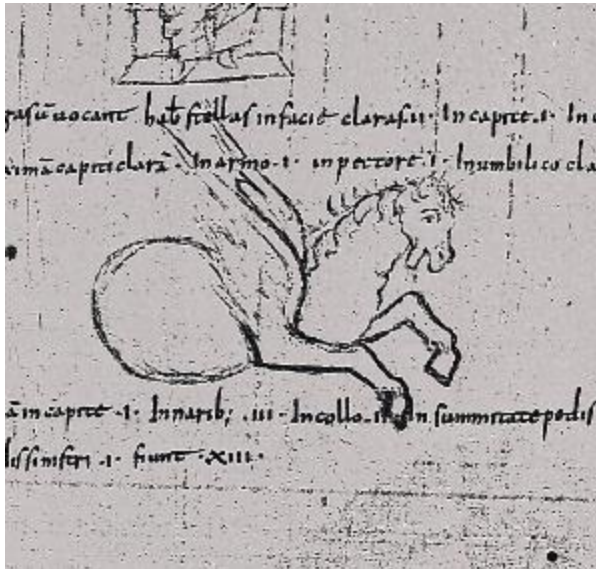 gasū uocant hab& stellas in facie claras ii· In capite ·i· In
simā capiti clarā· In armo ·i· in pectore ·i· In umbilico cla
ā in capite ·i· In narib; ·iii· In collo ·ii· In summitate pedis
sinistri ·i· fiunt ·xiii·